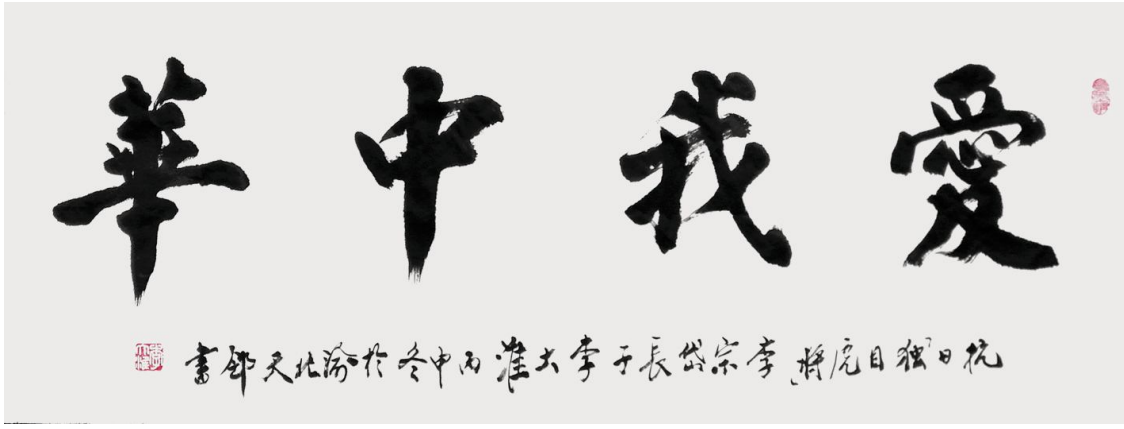 愛我中華
抗日“独目虎將”李宗岱長子李大淮丙申冬於渝北天邻書